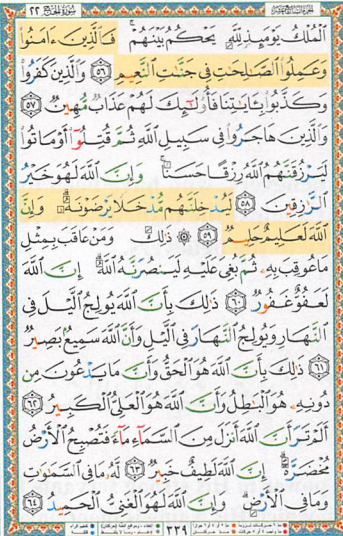 ٢٢ سُورَةُ الحَجِّ الجُزْءُ السَّابِعَ عَشَرَ
ٱلْمُلْكُ يَوْمَئِذٍ لِّلَّهِ يَحْكُمُ بَيْنَهُمْ ۚ فَٱلَّذِينَ ءَامَنُوا۟
وَعَمِلُوا۟ ٱلصَّٰلِحَٰتِ فِى جَنَّٰتِ ٱلنَّعِيمِ ٥٦ وَٱلَّذِينَ كَفَرُوا۟
وَكَذَّبُوا۟ بِـَٔايَٰتِنَا فَأُو۟لَٰٓئِكَ لَهُمْ عَذَابٌ مُّهِينٌ ٥٧
وَٱلَّذِينَ هَاجَرُوا۟ فِى سَبِيلِ ٱللَّهِ ثُمَّ قُتِلُوٓا۟ أَوْ مَاتُوا۟
لَيَرْزُقَنَّهُمُ ٱللَّهُ رِزْقًا حَسَنًا ۚ وَإِنَّ ٱللَّهَ لَهُوَ خَيْرُ
ٱلرَّٰزِقِينَ ٥٨ لَيُدْخِلَنَّهُم مُّدْخَلًا يَرْضَوْنَهُۥ ۗ وَإِنَّ
ٱللَّهَ لَعَلِيمٌ حَلِيمٌ ٥٩ ۞ ذَٰلِكَ وَمَنْ عَاقَبَ بِمِثْلِ
مَا عُوقِبَ بِهِۦ ثُمَّ بُغِىَ عَلَيْهِ لَيَنصُرَنَّهُ ٱللَّهُ ۗ إِنَّ ٱللَّهَ
لَعَفُوٌّ غَفُورٌ ٦٠ ذَٰلِكَ بِأَنَّ ٱللَّهَ يُولِجُ ٱلَّيْلَ فِى
ٱلنَّهَارِ وَيُولِجُ ٱلنَّهَارَ فِى ٱلَّيْلِ وَأَنَّ ٱللَّهَ سَمِيعٌۢ بَصِيرٌ
٦١ ذَٰلِكَ بِأَنَّ ٱللَّهَ هُوَ ٱلْحَقُّ وَأَنَّ مَا يَدْعُونَ مِن
دُونِهِۦ هُوَ ٱلْبَٰطِلُ وَأَنَّ ٱللَّهَ هُوَ ٱلْعَلِىُّ ٱلْكَبِيرُ ٦٢
أَلَمْ تَرَ أَنَّ ٱللَّهَ أَنزَلَ مِنَ ٱلسَّمَآءِ مَآءً فَتُصْبِحُ ٱلْأَرْضُ
مُخْضَرَّةً ۗ إِنَّ ٱللَّهَ لَطِيفٌ خَبِيرٌ ٦٣ لَّهُۥ مَا فِى ٱلسَّمَٰوَٰتِ
وَمَا فِى ٱلْأَرْضِ ۗ وَإِنَّ ٱللَّهَ لَهُوَ ٱلْغَنِىُّ ٱلْحَمِيدُ ٦٤
٣٣٩